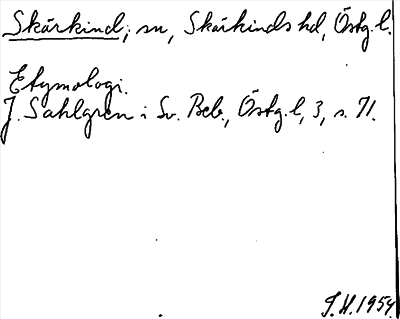 Skärkind, sn, Skärkinds hd, Östg. l.
Etymologi.
J. Sahlgren i Sv. Beb., Östg. l, 3, s. 71.
T.H. 1954.